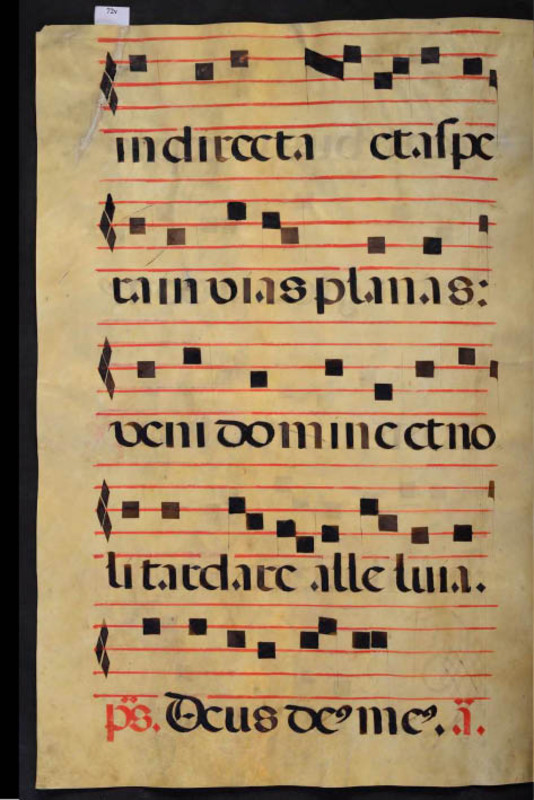 72v
in directa et aspe
ra in vias planas:
veni domine et no
li tardare alleluia.
ps. Deus de9 me9. a.